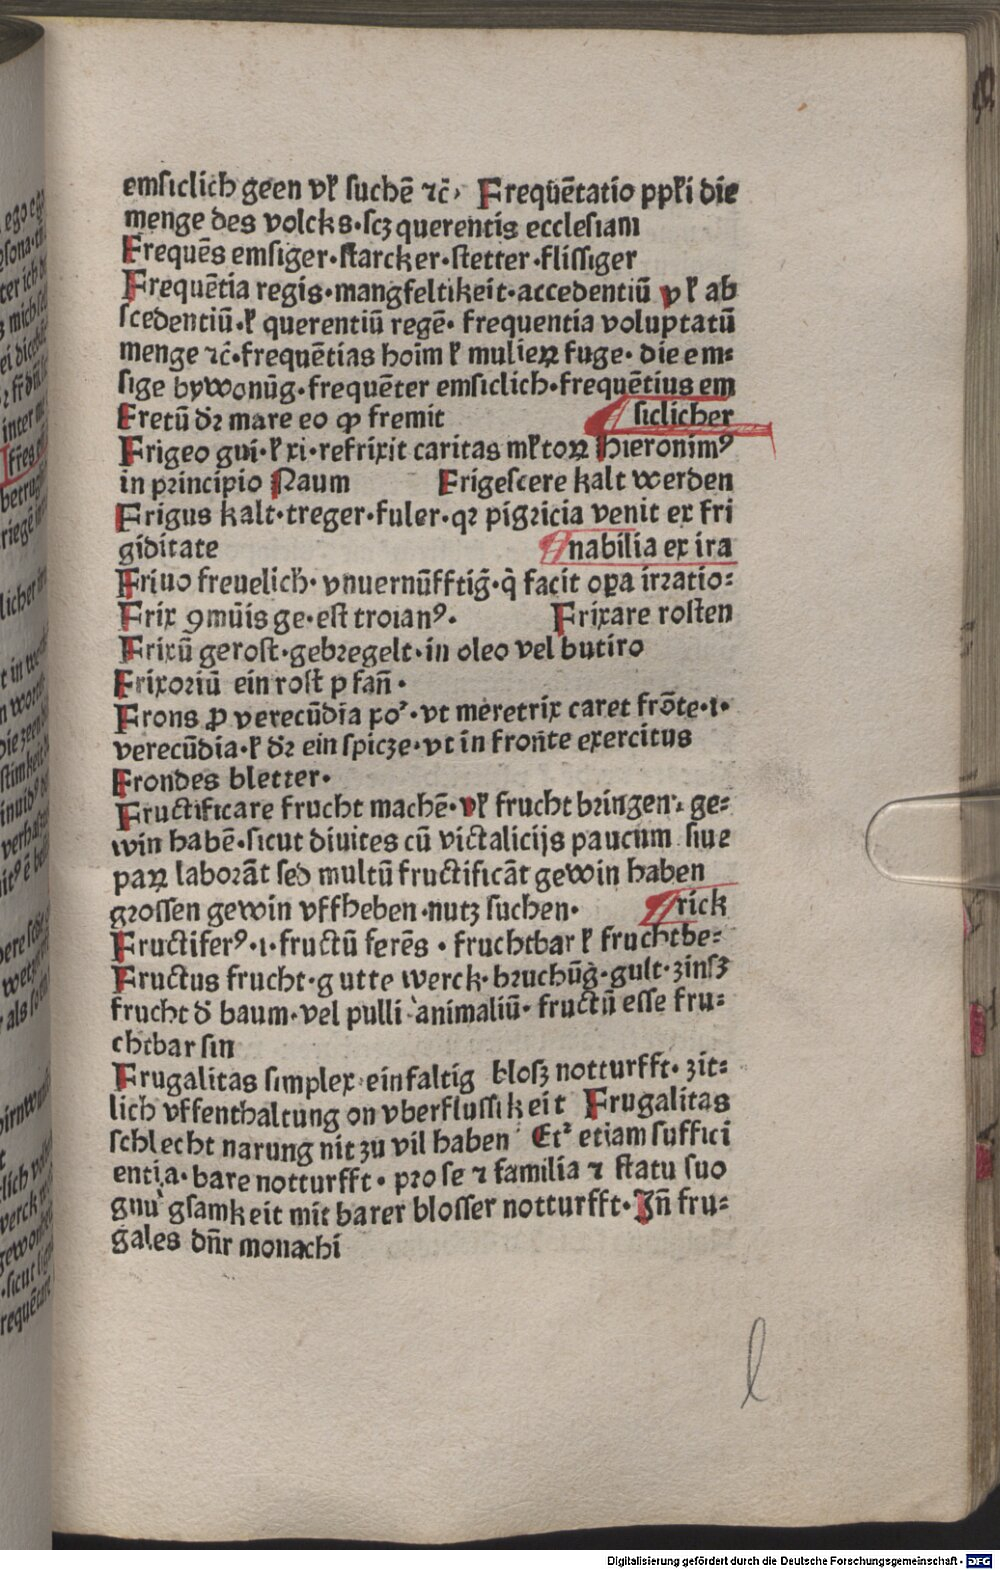 emsiclich geen vꝉ suchē ⁊c̄· Frequētatio ppľi die
menge des volcks·scꝫ querentis ecclesiam
Frequēs emsiger·starcker·stetter·flissiger
Frequētia regis·mangfeltikeit·accedentiū vꝉ ab
scedentiū·ꝉ querentiū regē·frequentia voluptatū
menge ⁊c̄·frequētias hoīm ꝉ mulieꝝ fuge·die em⸗
sige bywonūg·frequēter emsiclich·frequētius em
Fretū dr̄ mare eo ꝙ fremit siclicher
Frigeo gui·ꝉ xi·refrixit caritas mľtoꝝ Hieronimꝰ
in principio Naum Frigescere kalt werden
Frigus kalt·treger·fuler·qꝛ pigricia venit ex fri
giditate nabilia ex ira
Friuo freuelich·vnuernūfftiḡ·q̇ facit oꝑa irratio⸗
Frix ꝯmūis ge·est troianꝰ· Frixare rosten
Frixū gerost·gebregelt·in oleo vel butiro
Frixoriū ein rost pfañ·
Frons ꝓ verecūdia xoꝰ·vt meretrix caret frōte·i·
verecūdia·ꝉ dr̄ ein spicze·vt in fronte exercitus
Frondes bletter·
Fructificare frucht machē·vꝉ frucht bringen·ge⸗
win habē·sicut diuites cū victalicijs paucum siue
paꝝ laborāt sed multū fructificāt gewin haben
grossen gewin vffheben·nutz suchen· rick
Fructiferꝰ·i·fructū ferēs·fruchtbar ꝉ fruchtbe⸗
Fructus frucht·gutte werck·bruchūg·gult·zinsz
frucht d̄ baum·vel pulli animaliū·fructū esse fru⸗
chtbar sin
Frugalitas simplex·einfaltig blosz notturfft·zit⸗
lich vffenthaltung on vberflussikeit Frugalitas
schlecht narung nit zu vil haben Etꝰ etiam suffici
entia·bare notturfft·pro se ⁊ familia ⁊ statu suo
gnu gsamkeit mit barer blosser notturfft·Jñ fru⸗
gales dn̄r monachi
l
Digitalisierung gefördert durch die Deutsche Forschungsgemeinschaft - DFG